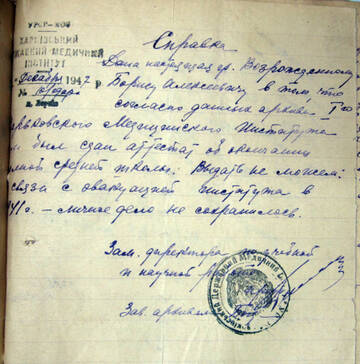 УРСР-НКОЗ
ХАРКІВСЬКИЙ
МЕДИЧНИЙ
ІНСТИТУТ
Декабря 1947 р
м. Харків
Справка
Дана настоящая гр. Возрожденному
Борису Алексеевичу в том, что
согласно данных архива 1го
Харьковского Медицинского Института
им был сдан аттестат об окончании
полной средней школы. Выдать не можем:
в связи с эвакуацией института в
1941 г. – личное дело не сохранилось.
Зам. директора по учебной
и научной
Зав. архивом
Державний Медичний